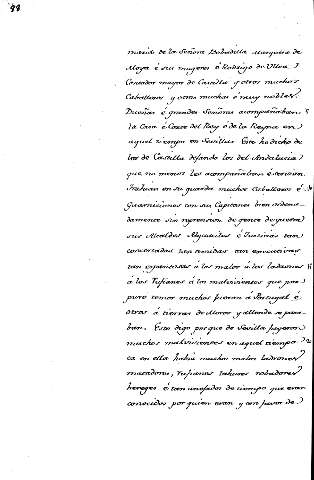 marido de la Señora Bobadilla Marquesa de
Moya é sus mugeres é Rodrigo de Ulloa
Contador mayor de Castilla y otros muchos
Caballeros y otras muchas é muy nobles
Dueñas é grandes Señoras acompañaban
la Casa é Corte del Rey é de la Reyna en
aquel tiempo en Sevilla. Esto ha dicho de
los de Castilla dejando los del Andalucia
que no menos les acompañaban é servian.
Trahian en su guarda muchos Caballeros é
Guarniciones con sus Capitanes bien ordena-
damente sin reprension de gente de guerra
sus Alcaldes Alguaciles é Justicias tan
concertadas tan temidas tan executivas
tan espantosas á los malos á los ladrones
á los Rufianes á los malvivientes que por
puro temor muchos fueron á Portugal é
otros á tierras de Moros y allende se pasa-
ban. Esto digo porque de Sevilla fuyeron
muchos malvivientes en aquel tiempo
ca en ella habia muchos malos ladrones
matadores, rufianes tahures robadores
hereges é tan usados de tiempo que eran
conocidos por quien eran y con favor de